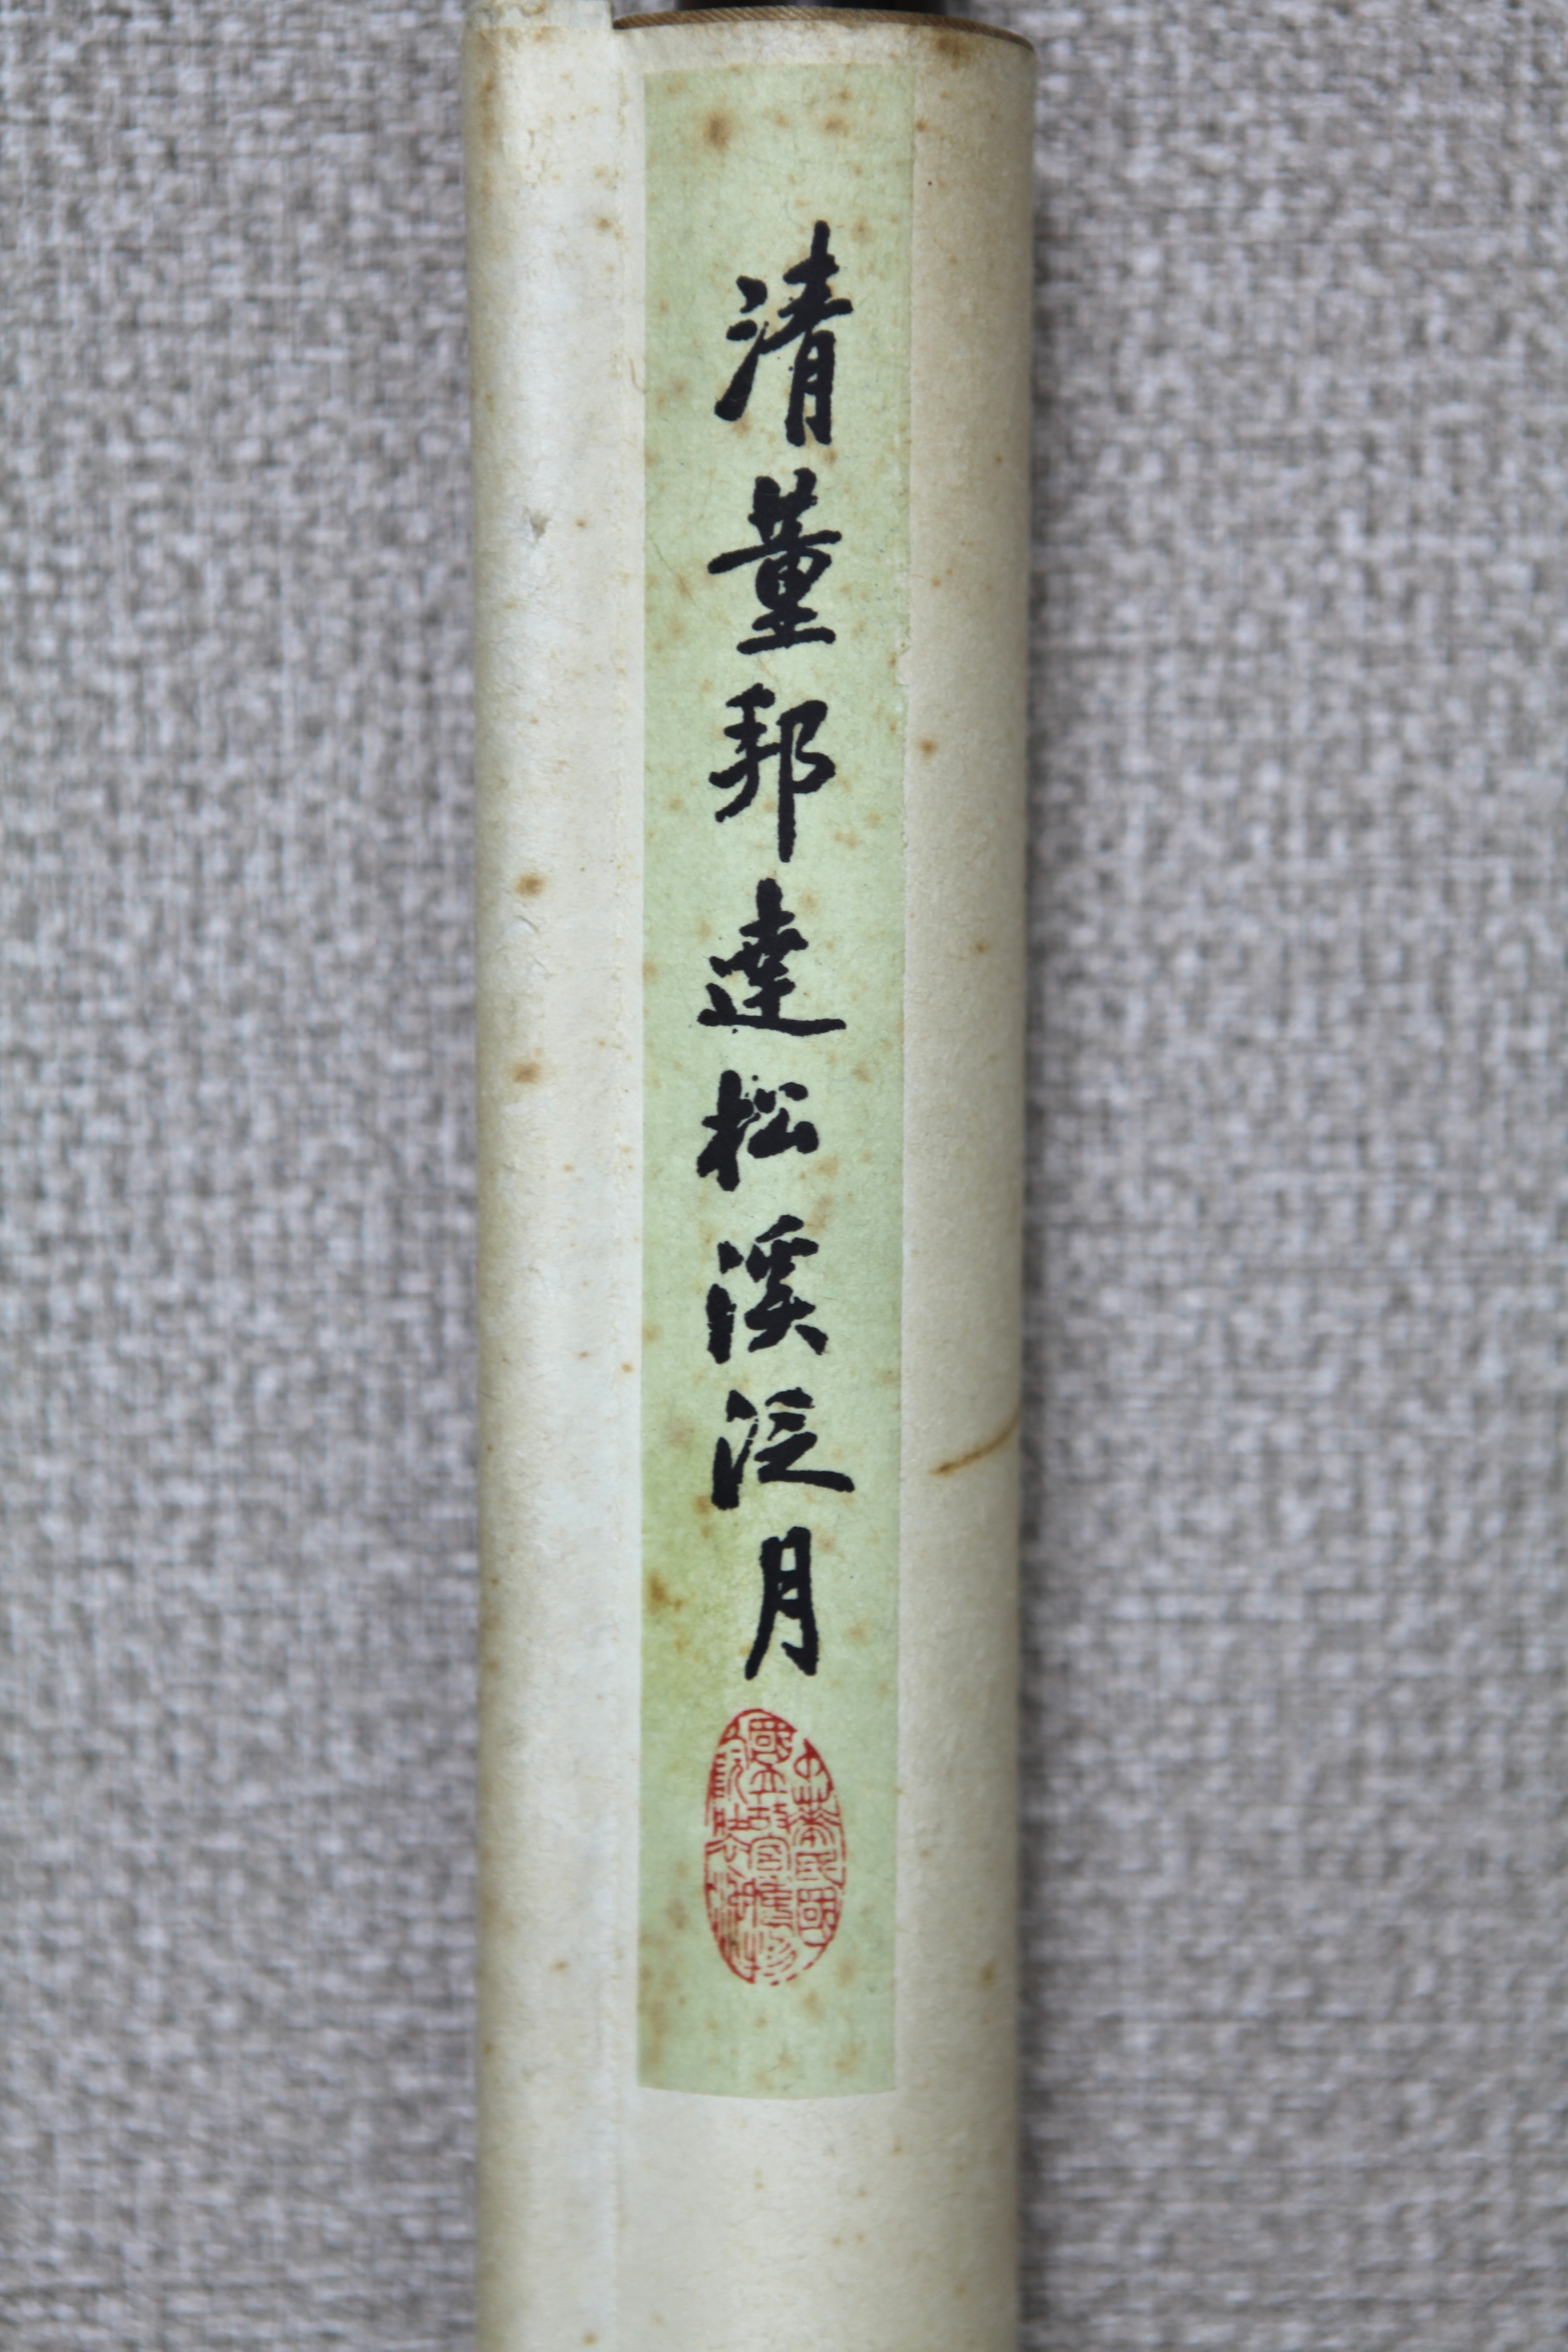 清董邦達松溪泛月
中華民國
國立故宮博物